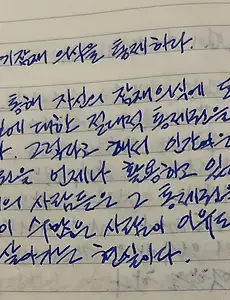 기잠재 의식을 통제하다.
통해 자신의 잠재의식에 도
에 대한 절대적 통제권을
다. 그렇다고 해서 인간은
을 언제나 활용하고 있
의 사람들은 그 통제권을
이 수많은 사람들이 이유도
살아가는 현실이다.